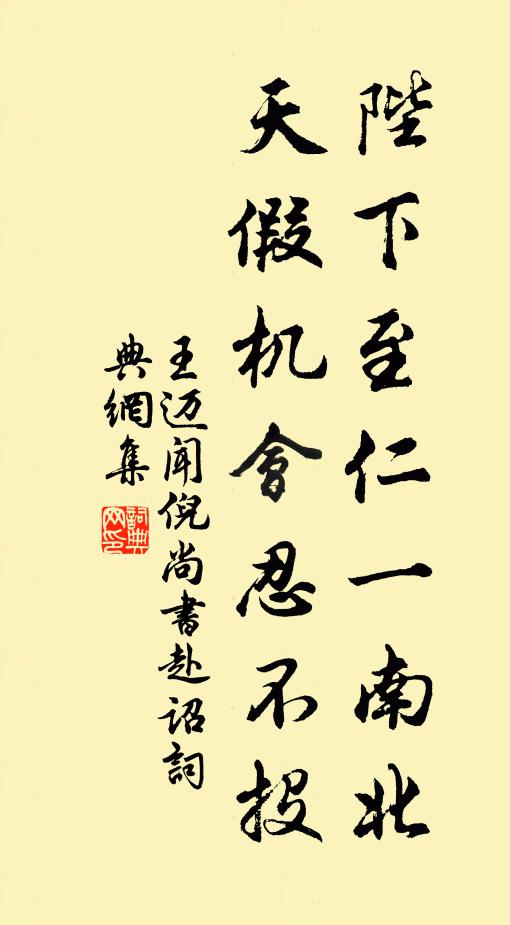 陛下至仁一南北
天假机會忍不投
王迈闻倪尚書赴诏詞
典網集
詞典网印